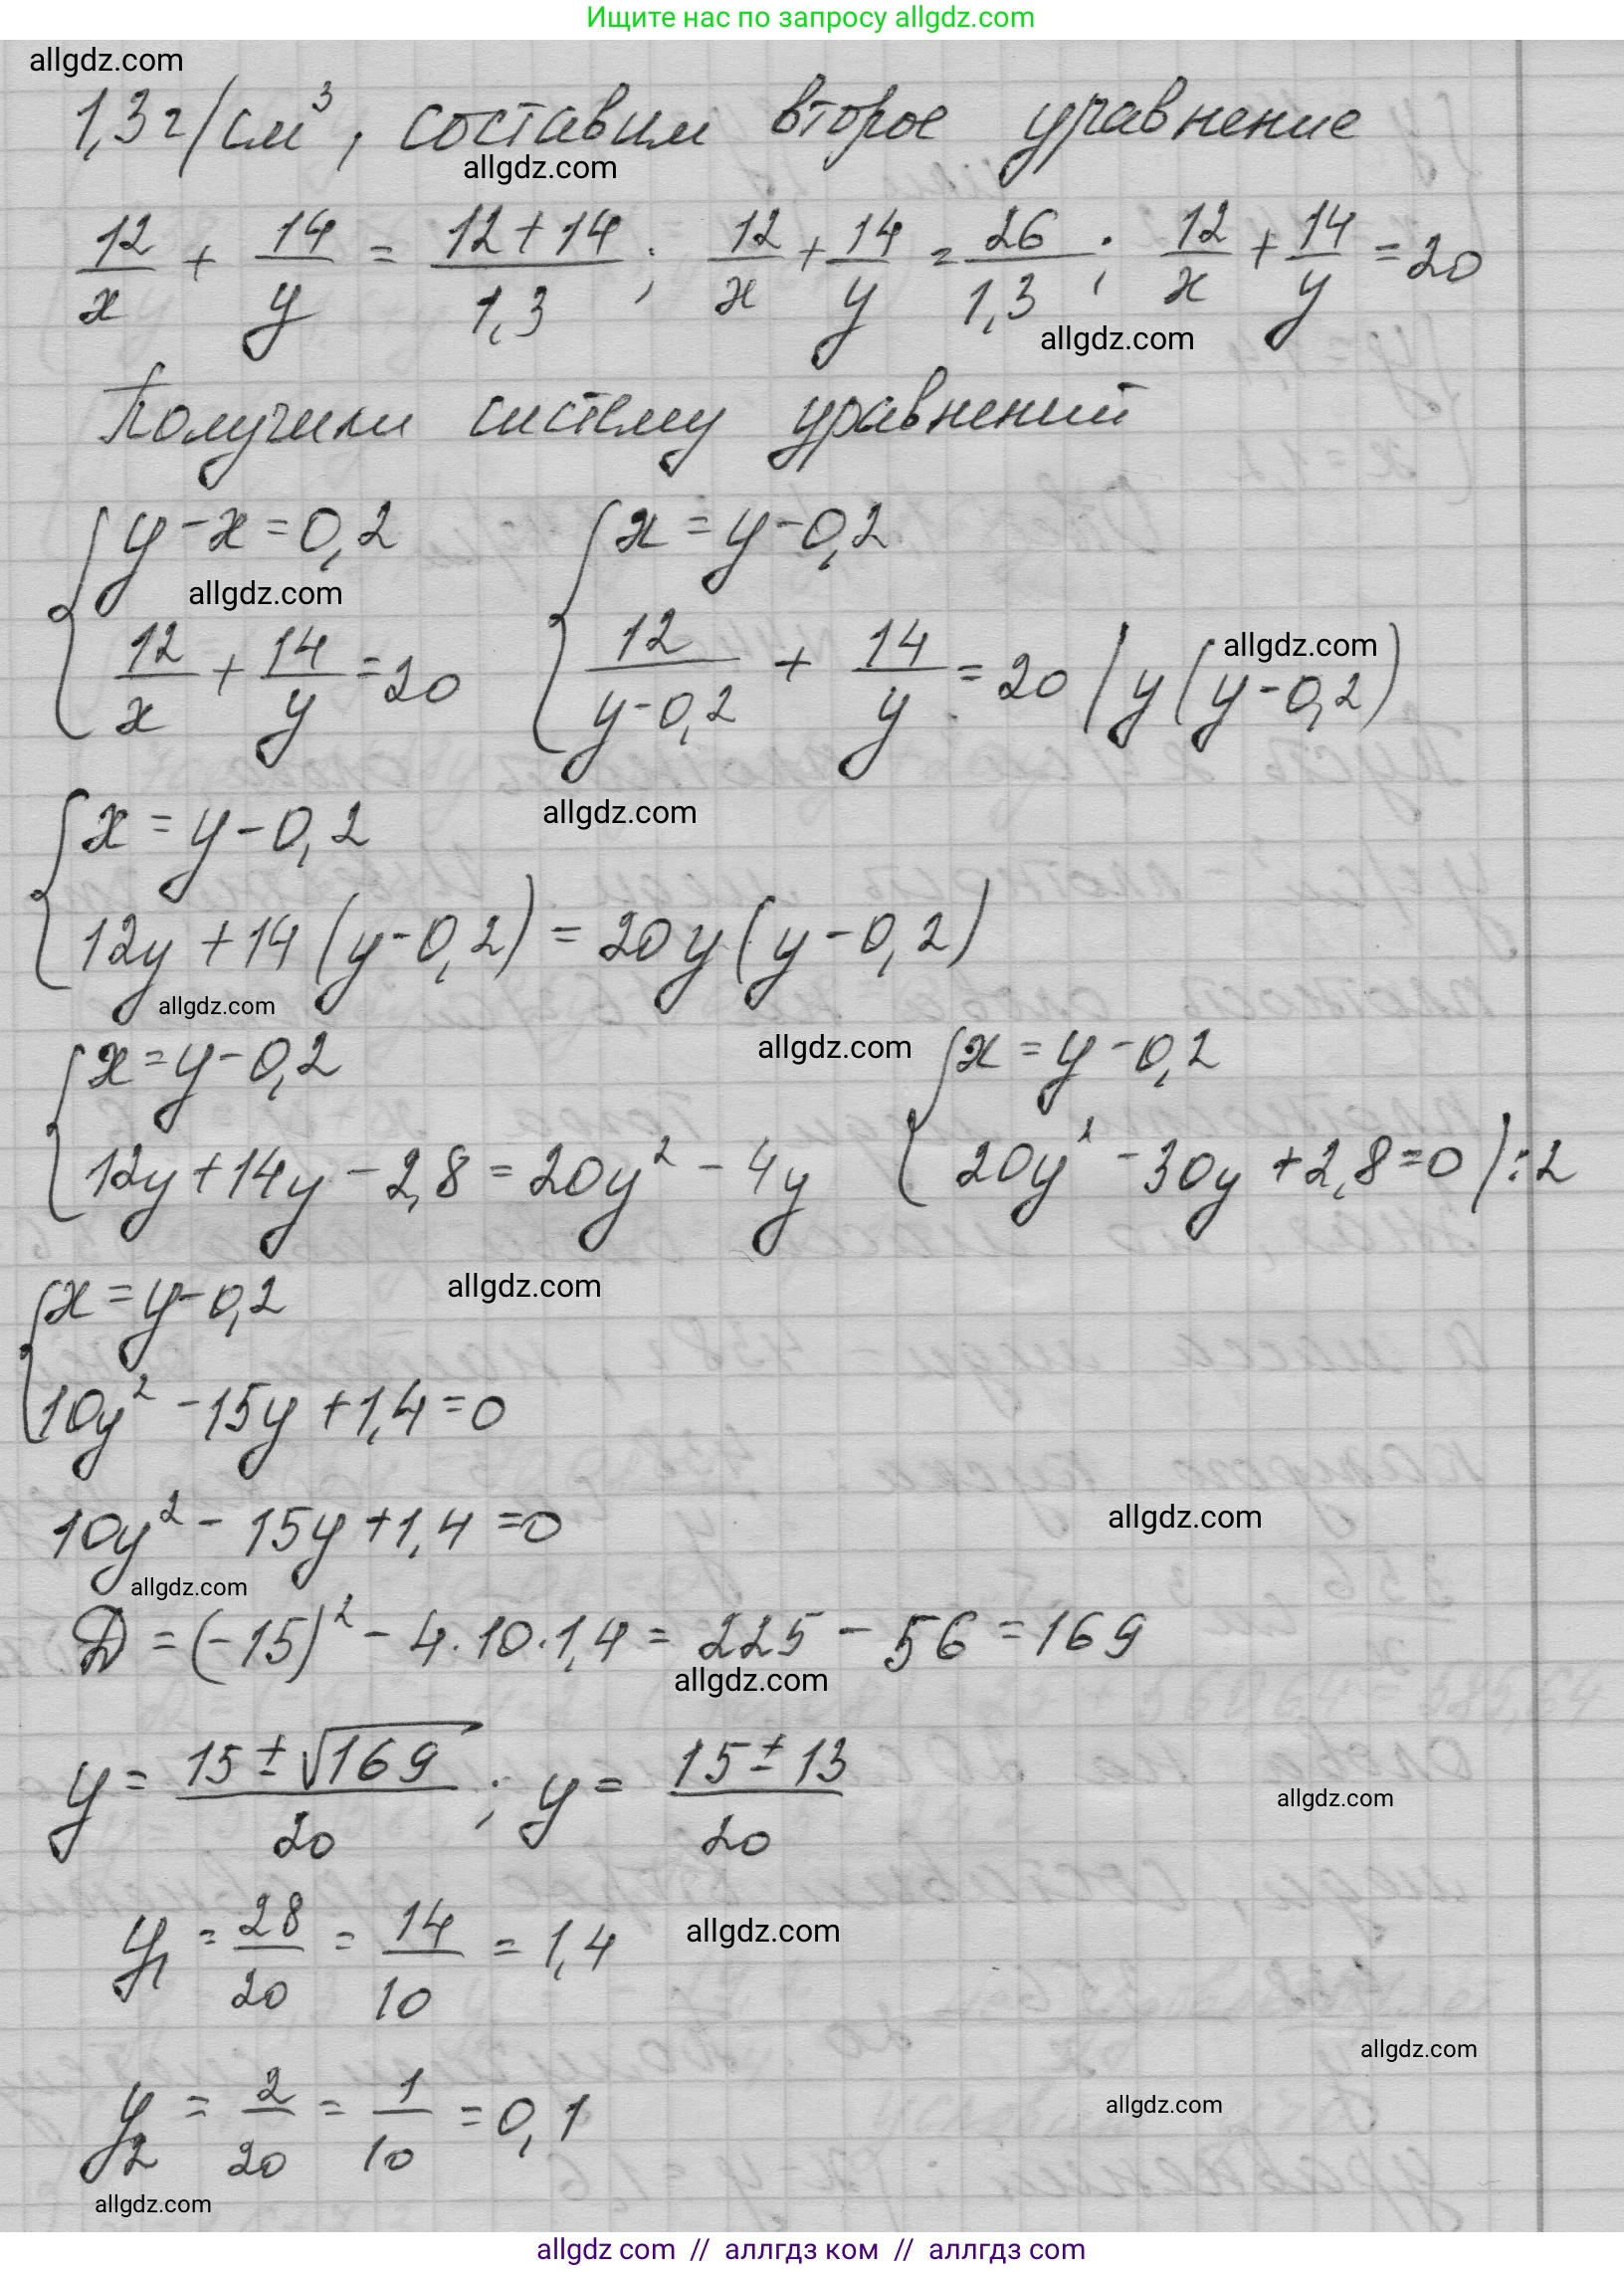 Ищите нас по запросу allgdz.com
allgdz.com
1,3 г/см³, составим второе уравнение
allgdz.com
12/x + 14/y = (12+14)/1,3 ; 12/x + 14/y = 26/1,3 ; 12/x + 14/y = 20
allgdz.com
Получили систему уравнений
{ y-x=0,2 { x=y-0,2
allgdz.com
12/x + 14/y = 20 12/(y-0,2) + 14/y = 20 | y(y-0,2)
allgdz.com
{ x=y-0,2
allgdz.com
12y+14(y-0,2)=20y(y-0,2)
allgdz.com
{ x=y-0,2 allgdz.com { x=y-0,2
12y+14y-2,8=20y²-4y 20y²-30y+2,8=0 ) :2
{ x=y-0,2 allgdz.com
10y²-15y+1,4=0
10y²-15y+1,4=0 allgdz.com
allgdz.com
D=(-15)²-4·10·1,4=225-56=169
allgdz.com
y= (15±√169)/20 ; y= (15±13)/20
allgdz.com
y₁ = 28/20 = 14/10 = 1,4 allgdz.com
allgdz.com
y₂ = 2/20 = 1/10 = 0,1 allgdz.com
allgdz.com
allgdz com // аллгдз ком // аллгдз com